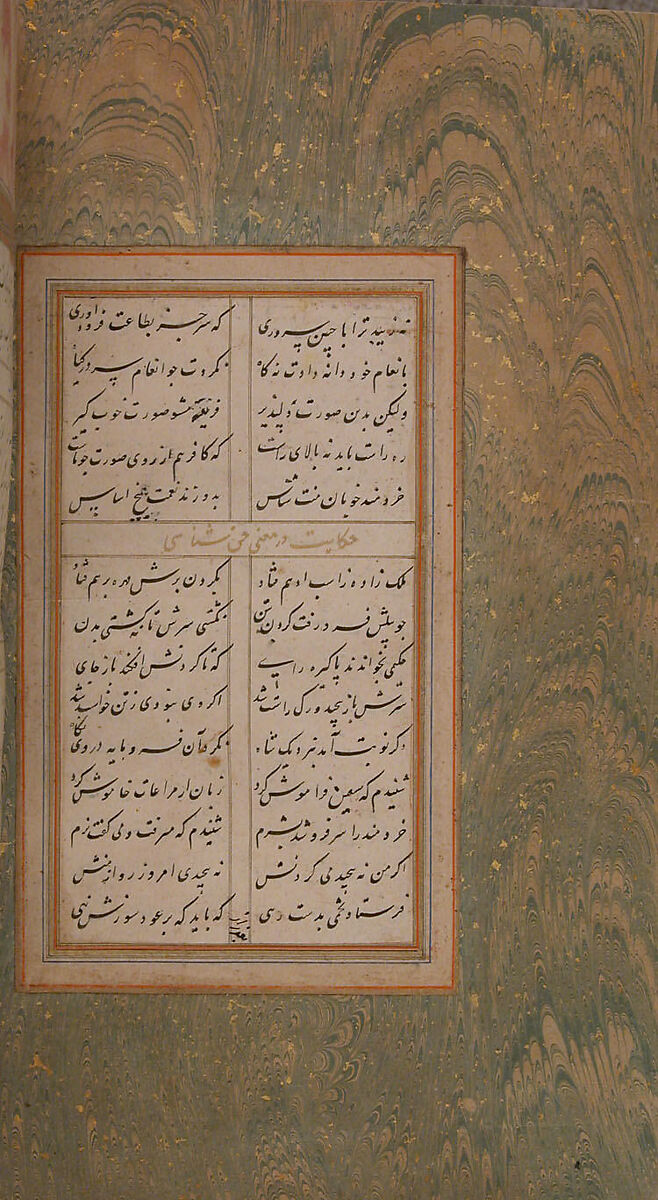 نه زیبد ترا با چنین سروری که سر جز بطاعت فرود آوری
بانعام خود دانه دادت نه کاه نکردت چو انعام سر در گیاه
ولیکن بدین صورت دلپذیر فریفته مشو صورت خوب گیر
ره راست باید نه بالای راست که کافر هم از روی صورت چو ماست
خردمند خویان منت شناس بدوزند نعمت بمیخ سپاس
حکایت در معنی حق شناسی
ملک زاده ز اسب ادهم فتاد بگردن برش مهره برهم فتاد
چو پیلش فرو رفت گردن بتن نگشتی سرش تا نگشتی بدن
حکیمی بخواندند پاکیزه رای که تا گردنش افکند باز جای
سرش باز پیچید و رگ راست شد اگر وی نبودی ز تن خواست شد
دگر نوبت آمد بنزدیک شاه نکرد آن فرومایه در وی نگاه
شنیدم که سعیش فراموش کرد زبان از مراعات خاموش کرد
خردمند را سر فرو شد بشرم شنیدم که میرفت و می گفت نرم
اگر من نه پیچیدمی گردنش نه پیچیدی امروز رو از منش
فرستاد تخمی بدست رهی که باید که بر عود سوزش نهی